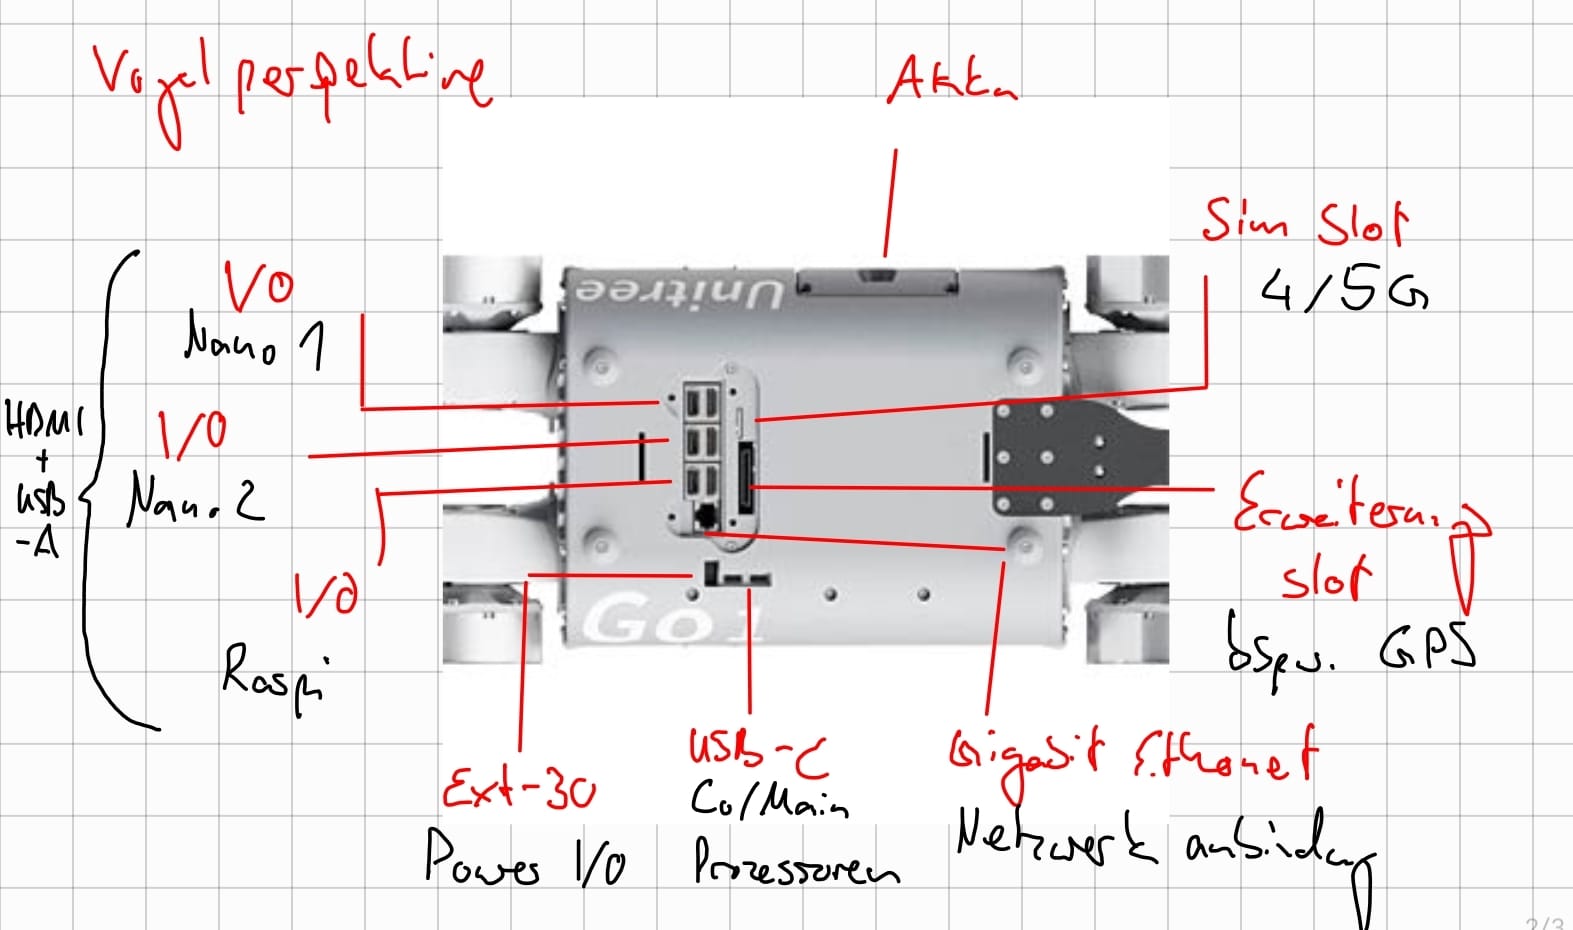 Vogelperspektive
Akku
Sim Slot
4/5G
I/O
Nano 1
I/O
Nano 2
HDMI
+
USB
-A
I/O
Raspi
Unitree
Go1
Erweiterung
slot
bspw. GPS
Ext-30
Power I/O
USB-C
Co/Main
Prozessoren
Gigabit Ethernet
Netzwerk anbindung
2/3